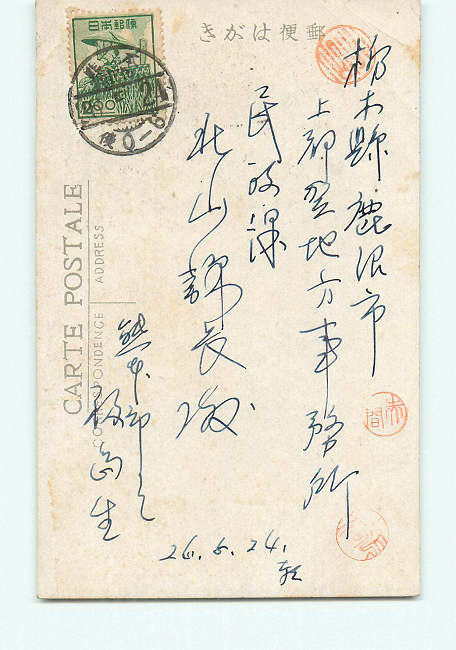 郵便はがき
日本郵便
200
後0-6
栃木縣鹿沼市
上都賀地方事務所
民政課
北山課長殿
熊本
生
26.6.24.
CARTE POSTALE
CORRESPONDENCE
ADDRESS